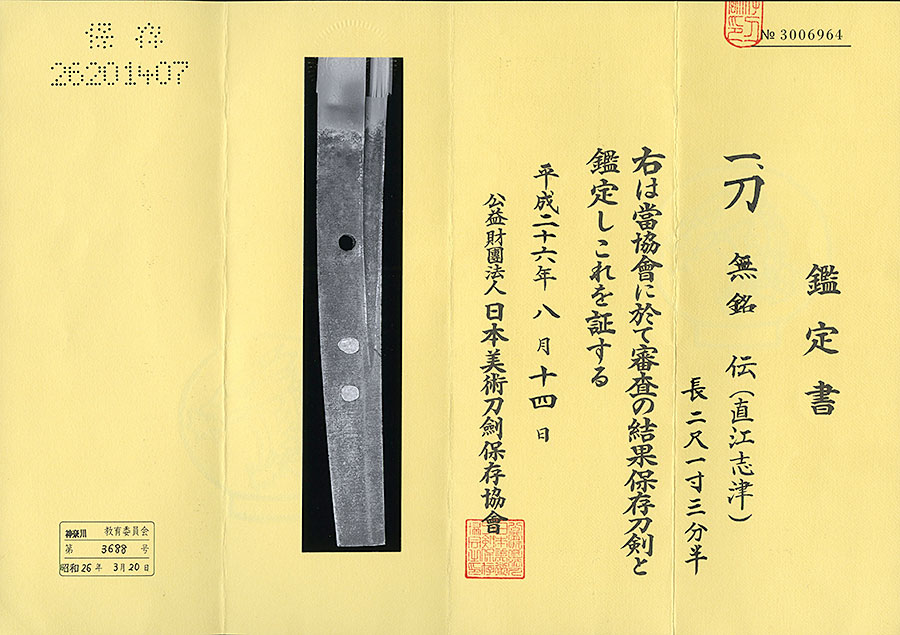 № 3006964
鑑定書
一、刀 無銘 伝(直江志津)
長二尺一寸三分半
右は當協會に於て審査の結果保存刀剣と
鑑定しこれを証する
平成二十六年八月十四日
公益財團法人 日本美術刀劍保存協會
保存
26201407
神奈川 教育委員会
第 3688 号
昭和26年 3月20日